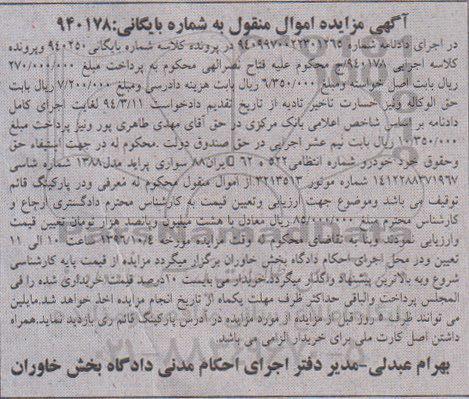 آگهی مزایده اموال منقول به شماره بایگانی:۹۴۰۱۷۸
در اجرای دادنامه شماره ۹۴۰۹۹۷۰۹۲۲۳۰۱۲۶۵ در پرونده کلاسه شماره بایگانی ۹۴۰۲۵۰ وپرونده
کلاسه اجرایی ۹۴۰۱۷۸/ج محکوم علیه فتاح نصرالهی محکوم به پرداخت مبلغ ۲۷۰/۰۰۰/۰۰۰
ریال بابت اصل خواسته ومبلغ ۶/۳۵۰/۰۰۰ ریال بابت هزینه دادرسی ومبلغ ۷/۲۰۰/۰۰۰ ریال بابت
حق الوکاله ونیز خسارت تاخیر تادیه از تاریخ تقدیم دادخواست ۹۴/۳/۱۱ لغایت اجرای کامل
دادنامه بر اساس شاخص اعلامی بانک مرکزی در حق آقای مهدی طاهری پور ونیز پرداخت مبلغ
۰۰۰/۳۵۰/ ریال بابت نیم عشر اجرایی در حق صندوق دولت .محکوم له در جهت استیفاء حق
وحقوق خود خودرو شماره انتظامی ۵۲۲ ه ۶۲ ایران۸۸ سواری پراید مدل۱۳۸۸ شماره شاسی
۱۴۱۲۲۸۸۳۷۱۹۶۷ شماره موتور ۳۲۱۳۵۱۳ از اموال منقول محکوم له معرفی ودر پارکینگ قائم
توقیف می باشد وموضوع جهت ارزیابی وتعیین قیمت به کارشناس محترم دادگستری ارجاع و
کارشناس محترم مبلغ ۸۵/۰۰۰/۰۰۰ ریال معادل با هشت میلیون وپانصد هزار تومان تعیین قیمت
وارزیابی نموده. وبنا به تقاضای محکوم له وقت مزایده مورخه ۱۳۹۶/۱۰/۴ ساعت ۱۰ الی ۱۱
تعیین ودر محل اجرای احکام دادگاه بخش خاوران برگزار میگردد مزایده از قیمت پایه کارشناسی
شروع وبه بالاترین پیشنهاد واگذار میگردد.خریدار می بایست ۱۰درصد قیمت خریداری شده را فی
المجلس پرداخت والباقی حداکثر ظرف مهلت یکماه از تاریخ انجام مزایده اخذ خواهد شد.مایلین
می توانند ظرف ۵ روز قبل از مزایده از مورد مزایده در آدرس پارکینگ قائم ری بازدید نماید.همراه
داشتن اصل کارت ملی برای خریدار الزامی می باشد.
بهرام عبدلی-مدیر دفتر اجرای احکام مدنی دادگاه بخش خاوران
ParsNamadData